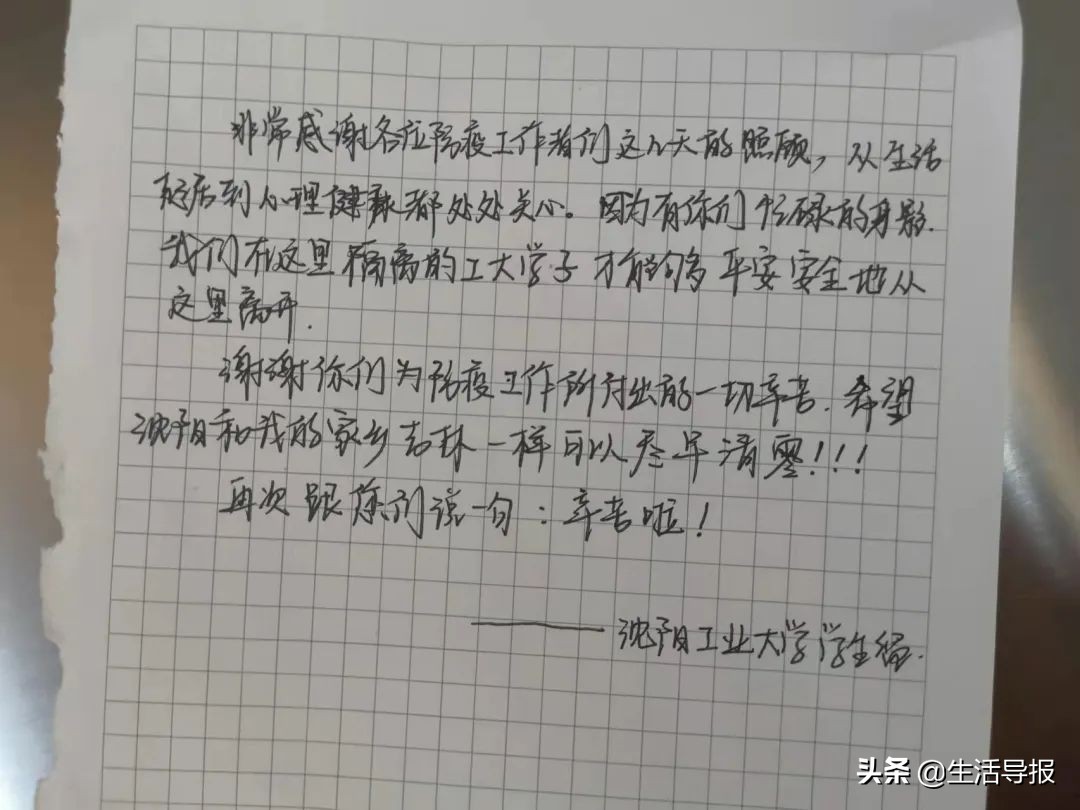 非常感谢各位防疫工作者们这几天的照顾，从生活
起居到心理健康都处处关心。因为有你们忙碌的身影.
我们在这里隔离的工大学子才能够平安安全地从
这里离开.
谢谢你们为防疫工作所付出的一切辛苦.希望
沈阳和我的家乡吉林一样可以尽早清零!!!
再次跟你们说一句：辛苦啦!
——沈阳工业大学学生
头条 @生活导报